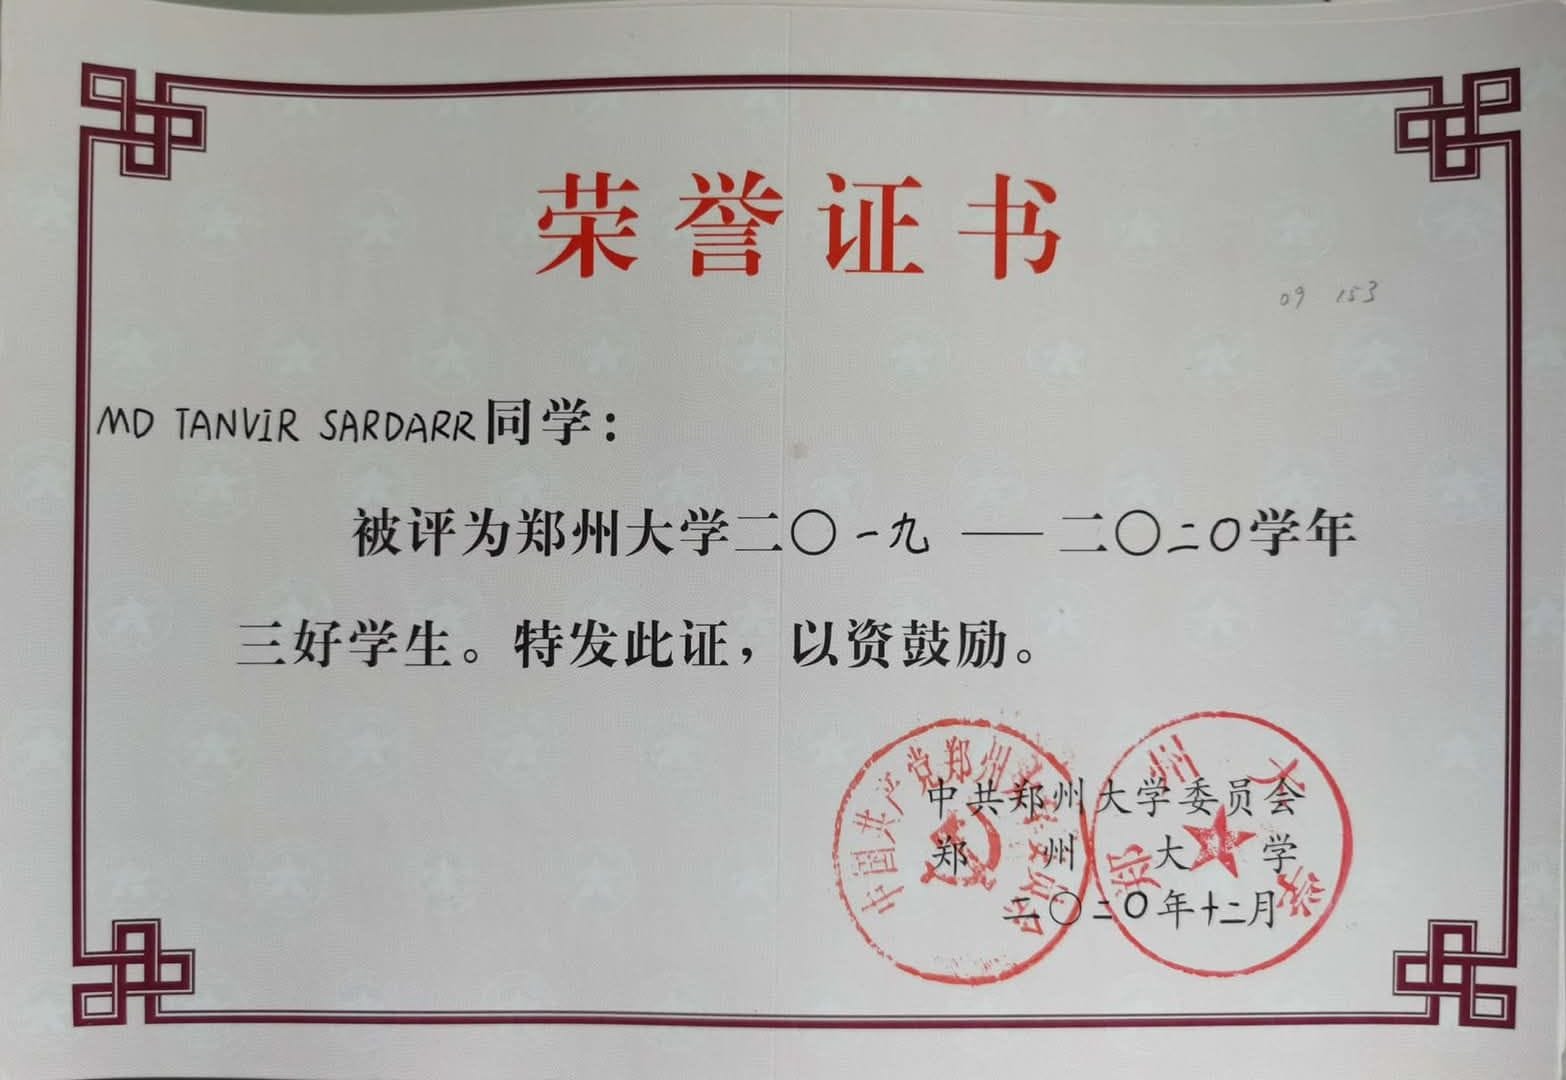 荣誉证书
09 153
MD TANVIR SARDARR同学：
被评为郑州大学二〇一九——二〇二〇学年
三好学生。特发此证，以资鼓励。
中共郑州大学委员会
郑州大学
二〇二〇年十二月
中国共产党郑州大学委员会
郑州大学